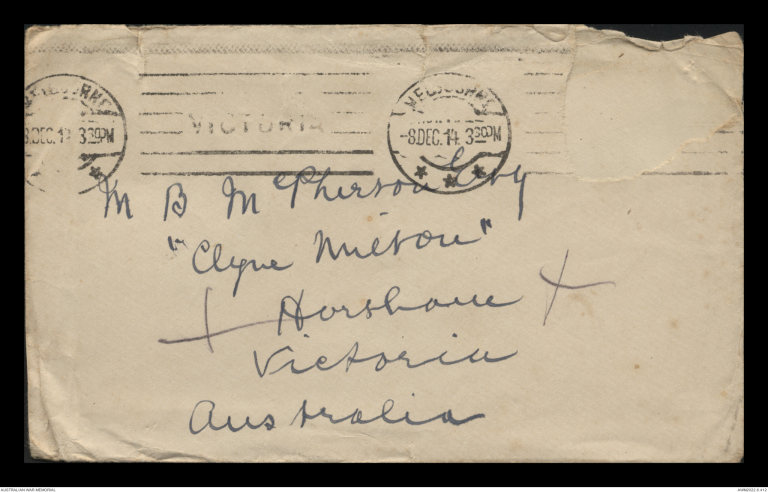 MELBOURNE
8.DEC.14 330PM
VICTORIA
MELBOURNE
-8DEC.14 330PM
M B McPherson Esq
"Clyne Milton"
Horsham
Victoria
Australia
AUSTRALIAN WAR MEMORIAL